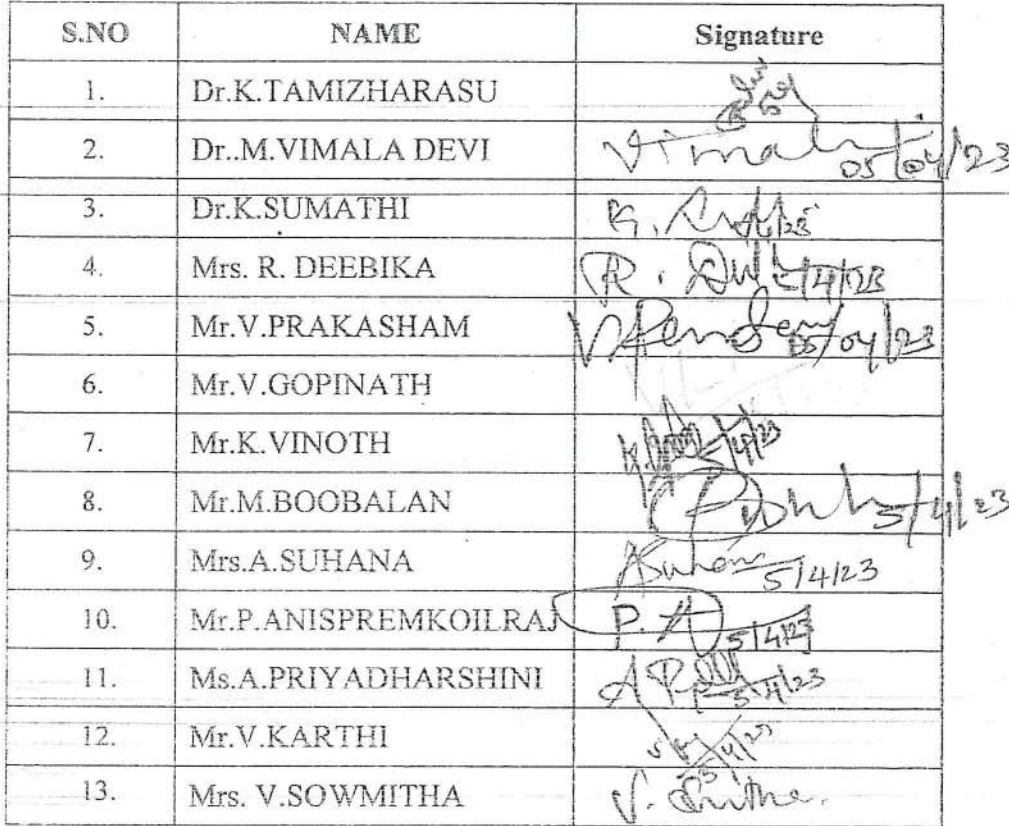 S.NO NAME Signature
1. Dr.K.TAMIZHARASU
2. Dr..M.VIMALA DEVI Vimala 05/04/23
3. Dr.K.SUMATHI K.
4. Mrs. R. DEEBIKA R. 5/4/23
5. Mr.V.PRAKASHAM 05/04/23
6. Mr.V.GOPINATH
7. Mr.K.VINOTH 5/4/23
8. Mr.M.BOOBALAN 5/4/23
9. Mrs.A.SUHANA ASuhana 5/4/23
10. Mr.P.ANISPREMKOILRAJ P. A 5/4/23
11. Ms.A.PRIYADHARSHINI 5/4/23
12. Mr.V.KARTHI 5/4/23
13. Mrs. V.SOWMITHA V.